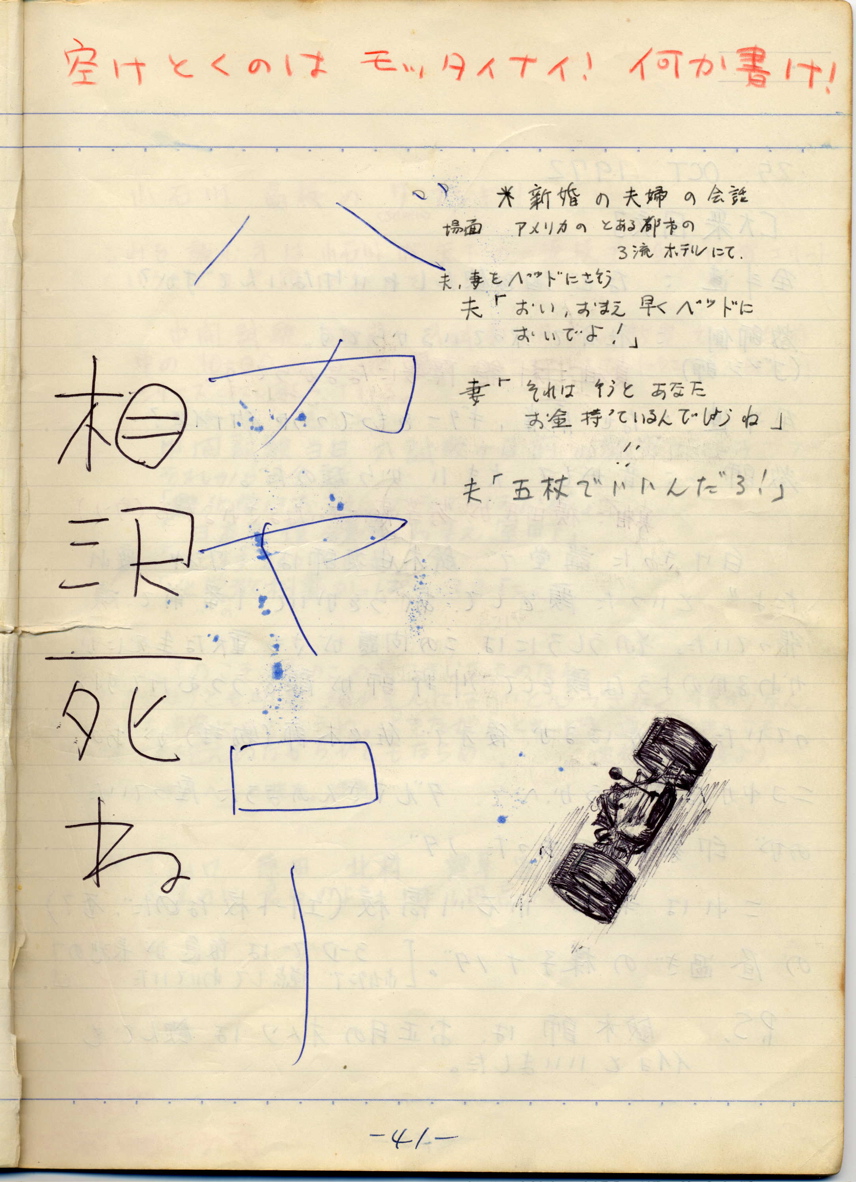 空けとくのは モッタイナイ! 何か書け!
※ 新婚の夫婦の会話
場面 アメリカの とある都市の
3流 ホテルにて.
夫,妻をベッドにさそう
夫「おい,おまえ 早く ベッドに
おいでよ!」
妻「それは そうと あなた
お金 持っているんでしょうね」
夫「五杖でいいんだろ!」
バカヤロー
相沢死ね
-41-